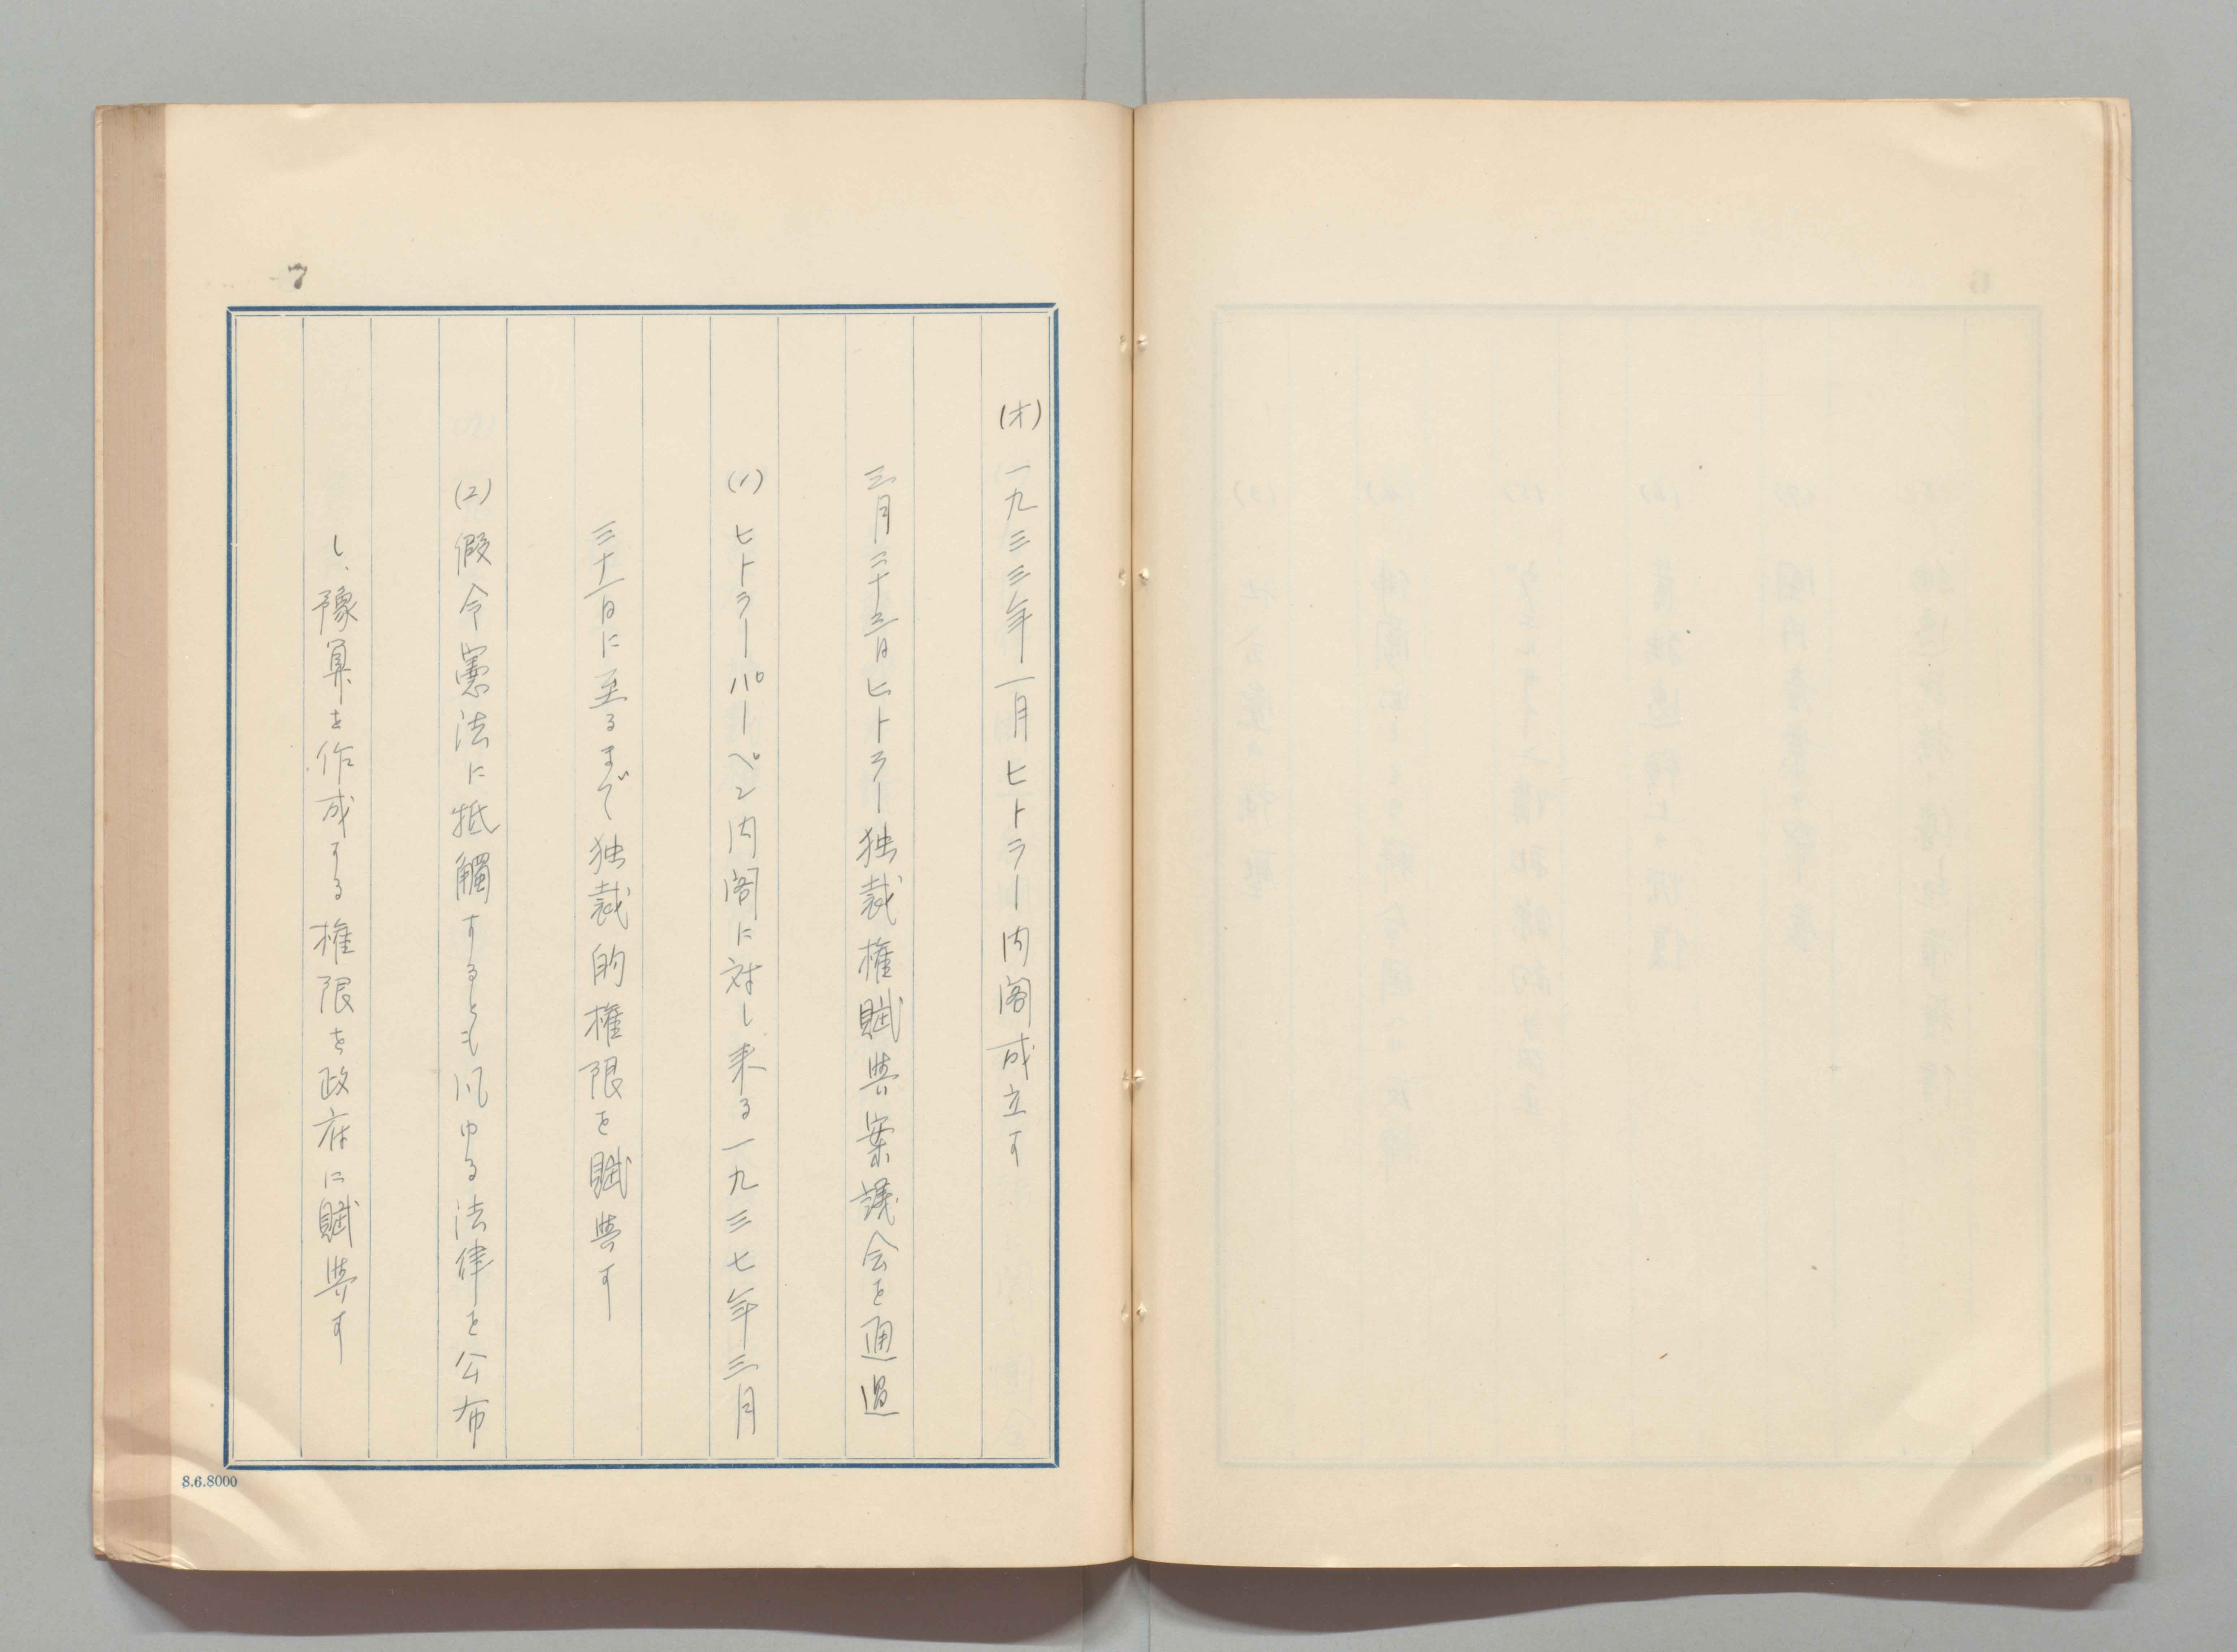 7
(オ)一九三三年一月ヒトラー内閣成立す
三月二十三日ヒトラー独裁権賦与案議会を通過
(1)ヒトラーパーペン内閣に対し来る一九三七年三月
三十一日に至るまで独裁的権限を賦与す
(2)假令憲法に牴觸するとも凡ゆる法律を公布
し、豫算を作成する権限を政府に賦与す
8.6.8000